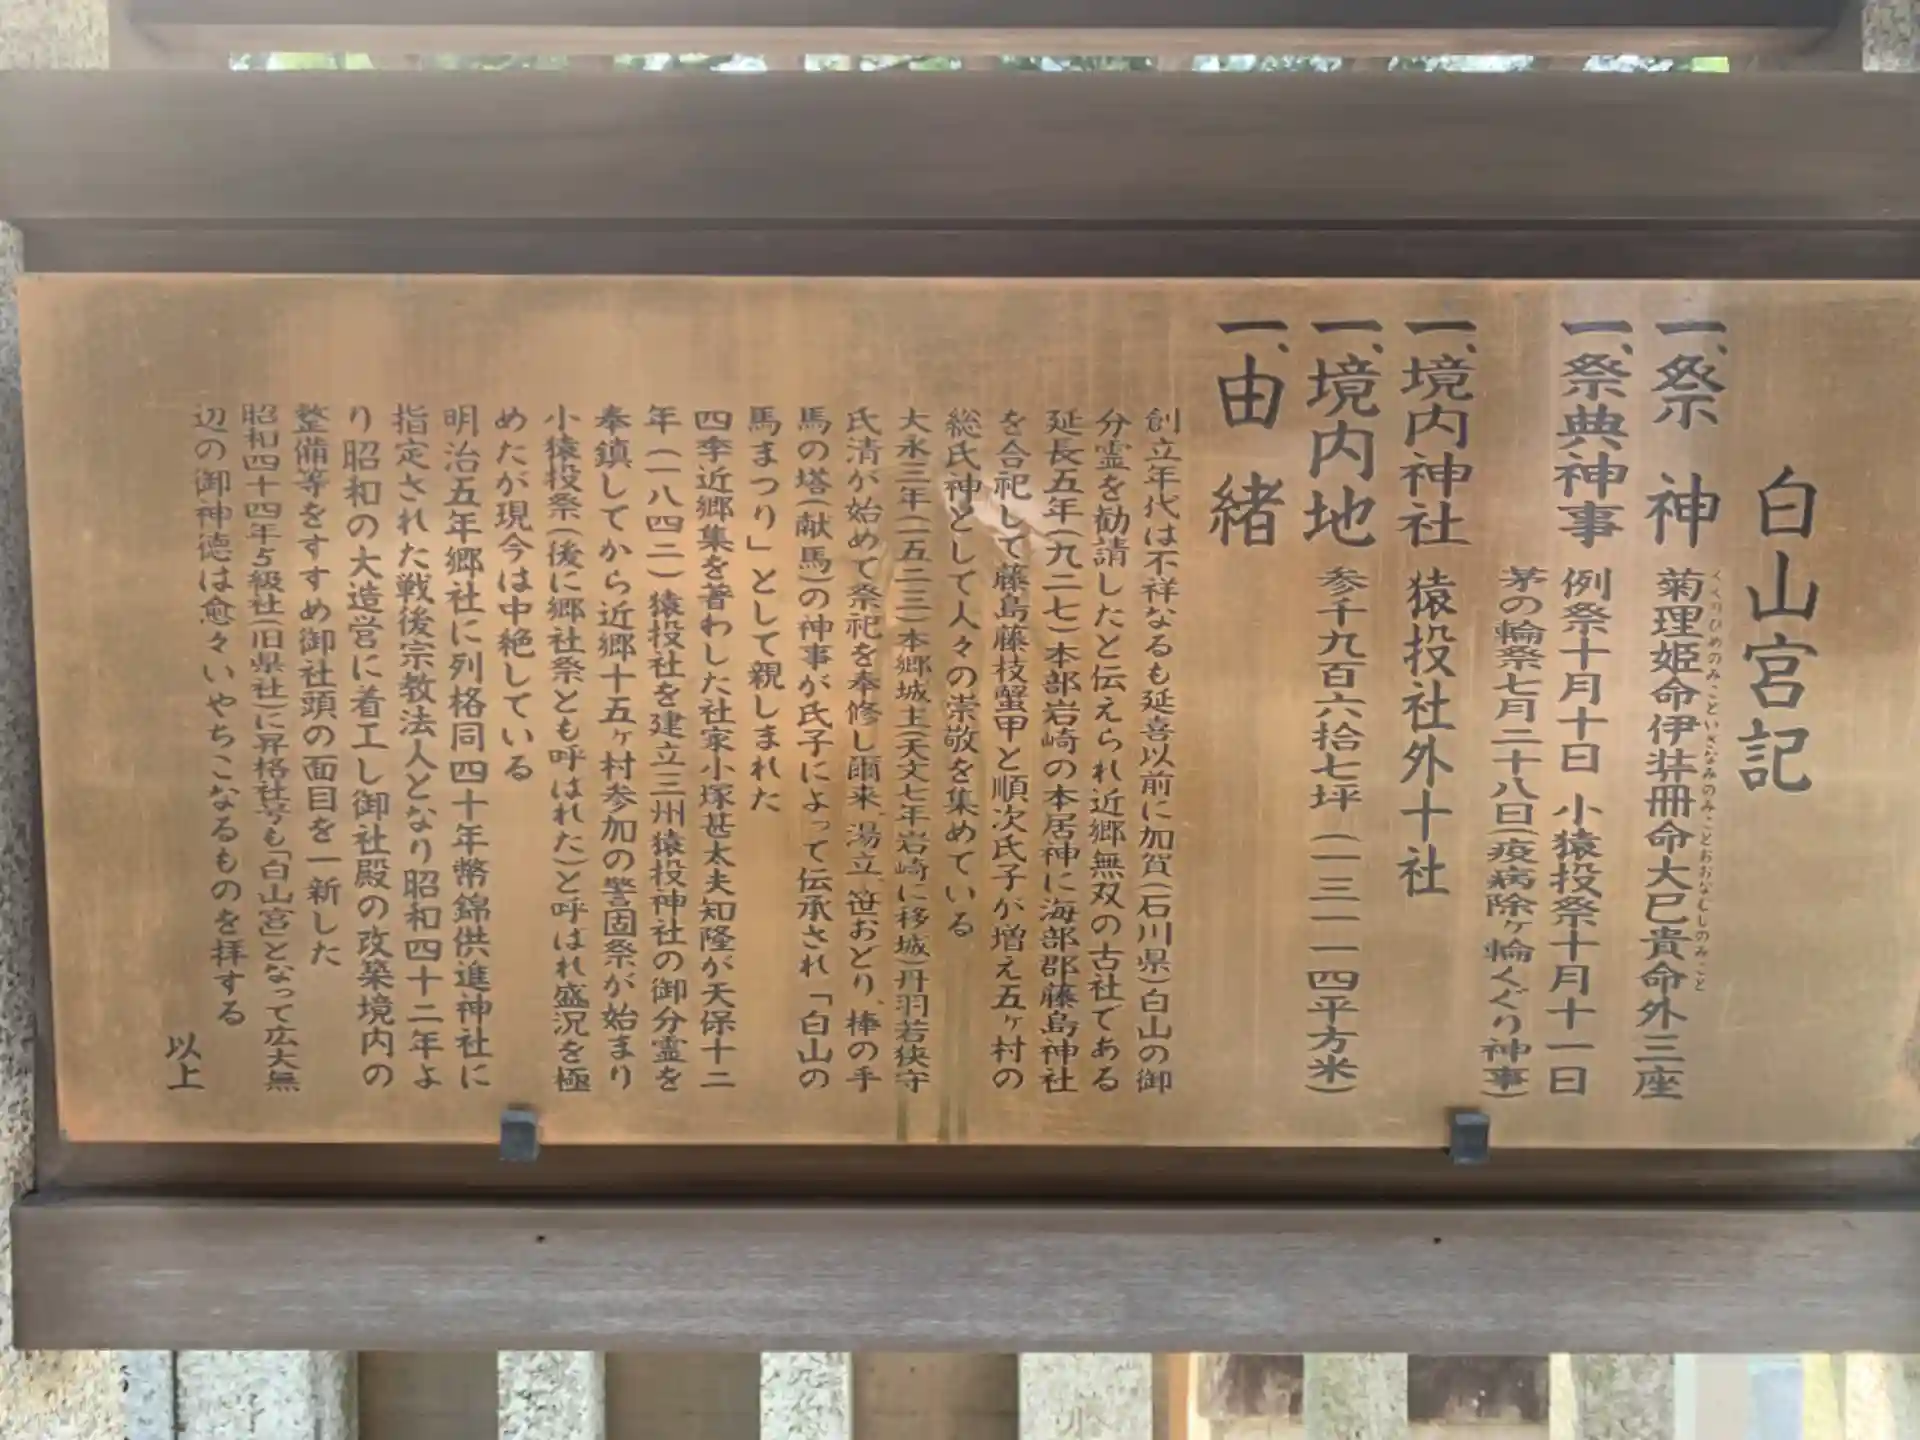 白山宮記
一、祭神 菊理姫命伊弉冊命大巳貴命外三座
くくりひめのみこといざなみのみことおおなむじのみこと
一、祭典神事 例祭十月十日 小猿投祭十月十一日
茅の輪祭七月二十八日(疫病除ヶ輪くぐり神事)
一、境内神社 猿投社外十社
一、境内地 参千九百六拾七坪(一三一一四平方米)
一、由緒
創立年代は不祥なるも延喜以前に加賀(石川県)白山の御
分霊を勧請したと伝えられ近郷無双の古社である
延長五年(九二七)本部岩崎の本居神に海部郡藤島神社
を合祀して藤島藤枝蟹甲と順次氏子が増え五ヶ村の
総氏神として人々の崇敬を集めている
大永三年(一五二三)本郷城主(天文七年岩崎に移城)丹羽若狭守
氏清が始めて祭祀を奉修し爾来、湯立、笹おどり、棒の手
馬の塔(献馬)の神事が氏子によって伝承され「白山の
馬まつり」として親しまれた
四季近郷集を著わした社家小塚甚太夫知隆が天保十二
年(一八四二)猿投社を建立三州猿投神社の御分霊を
奉鎮してから近郷十五ヶ村参加の警固祭が始まり
小猿投祭(後に郷社祭とも呼ばれた)と呼ばれ盛況を極
めたが現今は中絶している
明治五年郷社に列格同四十年幣錦供進神社に
指定された戦後宗教法人となり昭和四十二年よ
り昭和の大造営に着工し御社殿の改築境内の
整備等をすすめ御社頭の面目を一新した
昭和四十四年5級社(旧県社)に昇格社号も「白山宮」となって広大無
辺の御神徳は愈々いやちこなるものを拝する
以上